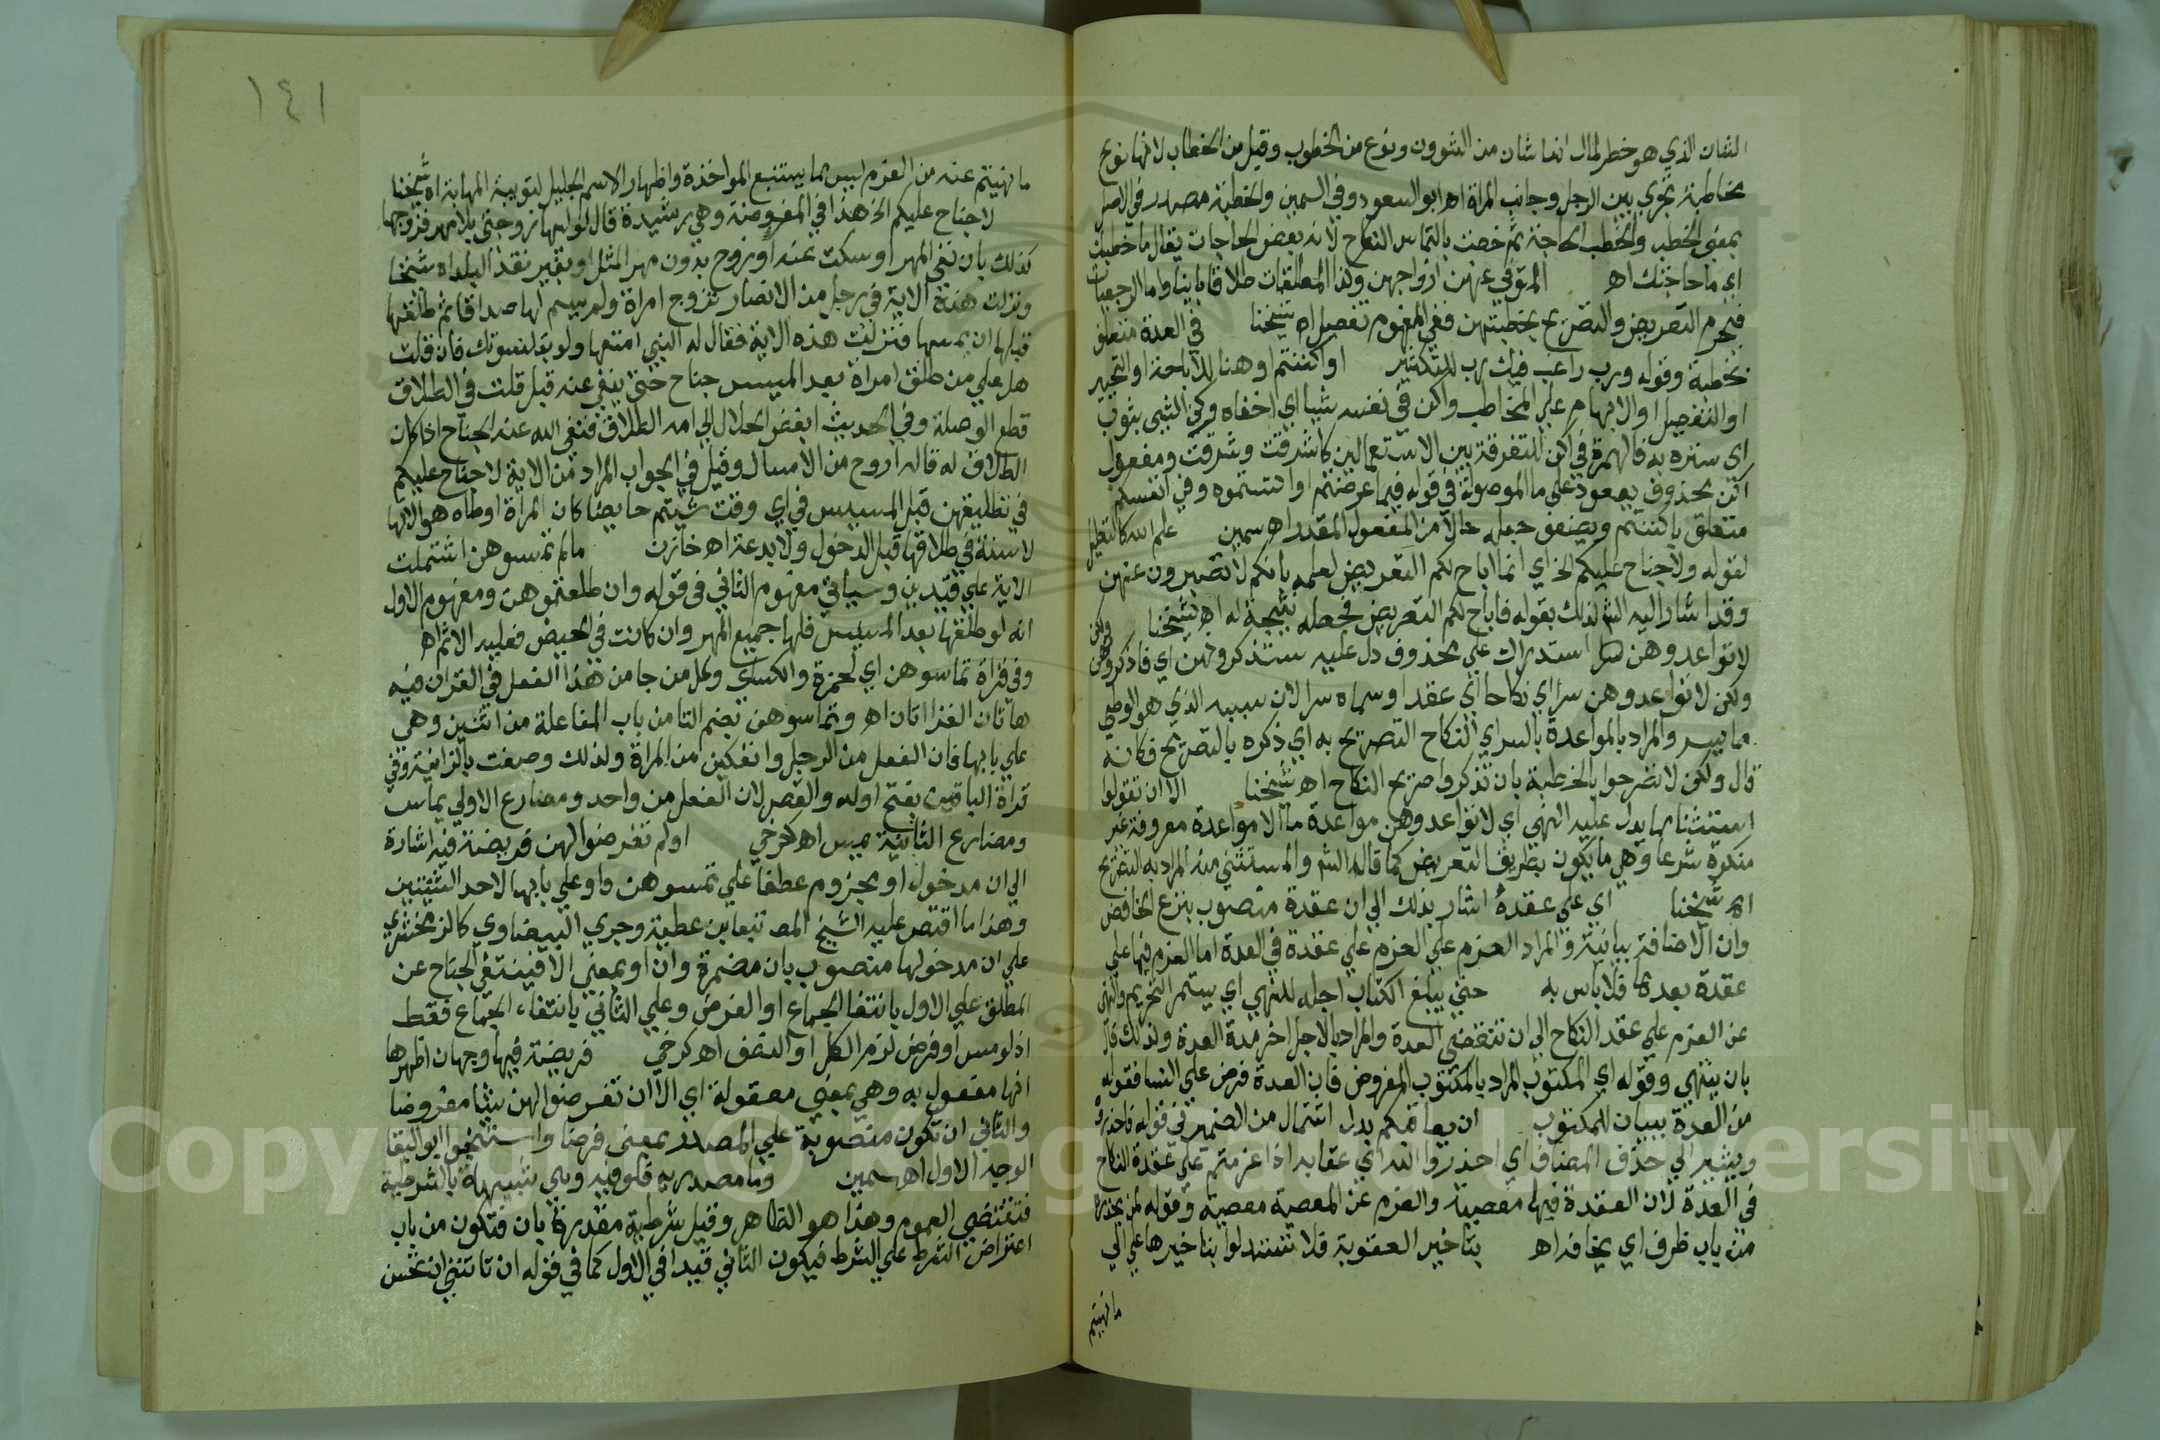 الشان الذي هو خطر لما انها شان من الشوون ونوع من الخطوب وقيل من الخطاب لانها نوع
مخاطبة تجري بين الرجل وجانب المراة اه ابو السعود وفي السمين والخطبة مصدر في الاصل
بمعني الخطب والخطب الحاجة ثم خصت بالتماس النكاح لانه بعض الحاجات يقال ما خطبك
اي ما حاجتك اه المتوفي عنهن ازواجهن وكذا المطلقات طلاقا باينا واما الرجعيات
فيحرم التعريض والتصريح بخطبتهن ففي المفهوم تفصيل اه شيخنا في العدة متعلق
بخطبة وقوله ورب راغب فيك رب للتكثير او اكننتم او هنا للاباحة او التخيير
او التفصيل او الابهام علي المخاطب واكن في نفسه شيا اي اخفاه وكن الشي بثوب
اي ستره به فالهمزة في اكن للتفرقة بين الاستعمالين كاشرقت وشرقت ومفعول
اكن محذوف يعود علي ما الموصولة في قوله فيما عرضتم او اكننتموه وفي انفسكم
متعلق باكننتم ويضعف جعله حالا من المفعول المقدر اه سمين علم الله كالتعليل
لقوله ولا جناح عليكم الخ اي انما اباح لكم التعريض لعلمه بانكم لا تصبرون عنهن
وقد اشار اليه الش لذلك بقوله فاباح لكم التعريض فجعله نتيجة له اه شيخنا ولكن
لا تواعدوهن سرا استدراك علي محذوف دل عليه ستذكرونهن اي فاذكروهن
ولكن لا تواعدوهن سرا اي نكاحا اي عقدا وسماه سرا لان سببه الذي هو الوطي
مما يسر والمراد بالمواعدة بالسر اي النكاح التصريح به اي ذكره بالتصريح فكانه
قال ولكن لا تصرحوا بالخطبة بان تذكروا صريح النكاح اه شيخنا الا ان تقولوا
استثنا مما يدل عليه النهي اي لا تواعدوهن مواعدة ما الا مواعدة معروفة غير
منكرة شرعا وهي ما يكون بطريق التعريض كما قاله الش والمستثني منه المراد به التصريح
اه شيخنا اي علي عقدة اشار بذلك الي ان عقدة منصوب بنزع الخافض
وان الاضافة بيانية والمراد العزم علي العزم علي عقدة في العدة اما العزم فيها علي
عقدة بعدها فلا باس به حتي يبلغ الكتاب اجله للنهي اي يستمر التحريم والنهي
عن العزم علي عقد النكاح الي ان تنقضي العدة والمراد بالاجل اخر مدة العدة ولذلك قال
بان ينتهي وقوله اي المكتوب المراد بالمكتوب المفروض فان العدة فرض علي النسا فقوله
من العدة بيان للمكتوب ان يعاقبكم بدل اشتمال من الضمير في قوله فاحذروه
ويشير الي حذف المضاف اي احذروا الله اي عقابه اذا عزمتم علي عقدة النكاح
في العدة لان العقدة فيها معصية والعزم عن المعصية معصية وقوله لمن يحذره
من باب ظرف اي يخافه اه بتاخير العقوبة فلا تستدلوا بتاخيرها علي الي
ما نهيتم
١٤١
ما نهيتم عنه من العزم ليس مما يستتبع المواخذة واظهار الاسم الجليل لتربية المهابة اه شيخنا
لا جناح عليكم الخ هذا في المفوضة وهي رشيدة قال لوليها زوجني بلا مهر فزوجها
كذلك بان نفي المهر او سكت عنه او زوج بدون مهر المثل او بغير نقد البلد اه شيخنا
ونزلت هذه الاية في رجل من الانصار تزوج امراة ولم يسم لها صداقا ثم طلقها
قبل ان يمسها فنزلت هذه الاية فقال له النبي امتعها ولو بقلنسوتك فان قلت
هل علي من طلق امراة بعد المسيس جناح حتي ينفي عنه قبل قلت في الطلاق
قطع الوصلة وفي الحديث ابغض الحلال الي الله الطلاق فنفي الله عنه الجناح اذا كان
الطلاق له قاله اروح من الامساك وقيل في الجواب المراد من الاية لا جناح عليكم
في تطليقهن قبل المسيس في اي وقت شيتم حايضا كان المراة او طاهر لانها
لا سنة في طلاقها قبل الدخول ولا بدعة اه خازن ما لم تمسوهن اشتملت
الاية علي قيدين وسياتي مفهوم الثاني في قوله وان طلقتموهن ومفهوم الاول
انه لو طلقها بعد المسيس فلها جميع المهر وان كانت في الحيض فعليه الاثم اه
وفي قراة تماسوهن اي لحمزة والكساي وكل من جا من هذا الفعل في القران فيه
هاتان القراتان اه وتماسوهن بضم التا من باب المفاعلة من اثنين وهي
علي بابها فان الفعل من الرجل والتمكين من المراة ولذلك وصفت بالزانية وفي
قراة الباقين بفتح اوله والقصر لان الفعل من واحد ومضارع الاولي يماس
ومضارع الثانية يمس اه كرخي اولم تفرضوا لهن فريضة فيه اشارة
الي ان مدخول او مجزوم عطفا علي تمسوهن واو علي بابها لاحد الشيئين
وهذا ما اقتصر عليه الشيخ المص تبعا بن عطية وجري البيضاوي كالزمخشري
علي ان مدخولها منصوب بان مضمرة وان او بمعني الا فينتفي الجناح عن
المطلق علي الاول بانتفا الجماع او الفرض وعلي الثاني بانتفاء الجماع فقط
اذ لو مس او فرض لزم الكل او النصف اه كرخي فريضة فيها وجهان اظهرها
انها مفعول به وهي بمعني مفعولة اي الا ان تفرضوا لهن شيئا مفروضا
والثاني ان تكون منصوبة علي المصدر بمعني فرضا واستجودا ابو البقا
الوجه الاول اه سمين وما مصدرية ظرفية وهي شبيهة بالشرطية
فتقتضي العموم وهذا هو الظاهر وقيل شرطية مقدرة بان فتكون من باب
اعتراض الشرط علي الشرط فيكون الثاني قيدا في الاول كما في قوله ان تاتني ان تحسن
Copyright © King Saud University